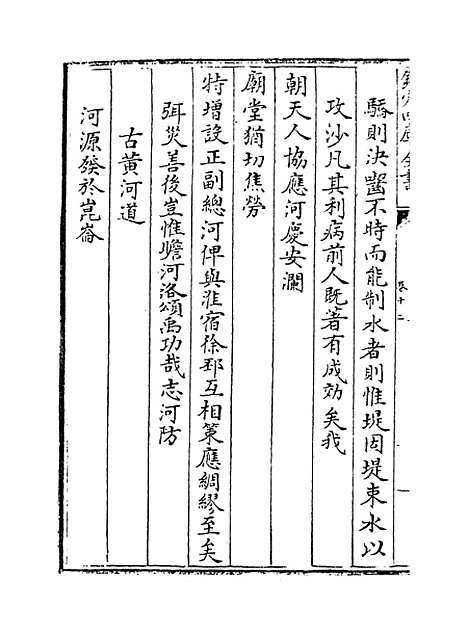 欽定四庫全書
卷十二
驕則決齧不時而能制水者則惟堤因堤束水以
攻沙凡其利病前人既著有成効矣我
朝天人協應河慶安瀾
廟堂猶切焦勞
特增設正副總河俾與淮宿徐邳互相策應綢繆至矣
弭災善後豈惟瞻河洛頌禹功哉志河防
古黄河道
河源發於崑崙